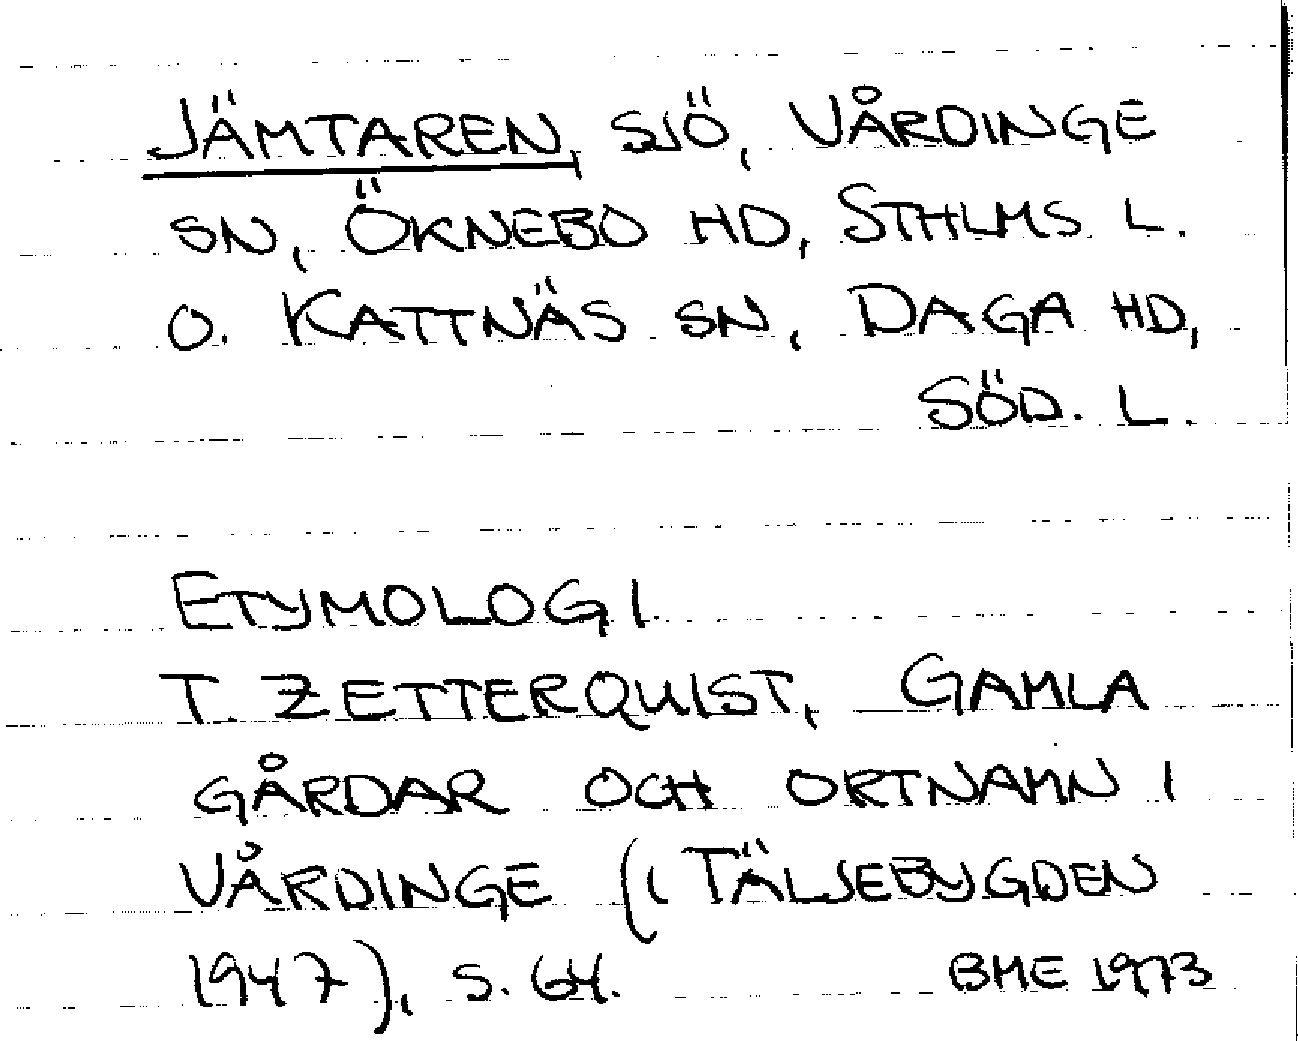 JÄMTAREN, SJÖ, VÅRDINGE
SN, ÖKNEBO HD, STHLMS L.
O. KATTNÄS SN, DAGA HD,
SÖD. L.
ETYMOLOGI
T. ZETTERQUIST, GAMLA
GÅRDAR OCH ORTNAMN I
VÅRDINGE (I TÄLJEBYGDEN
1947), S. 64.
BME 1973